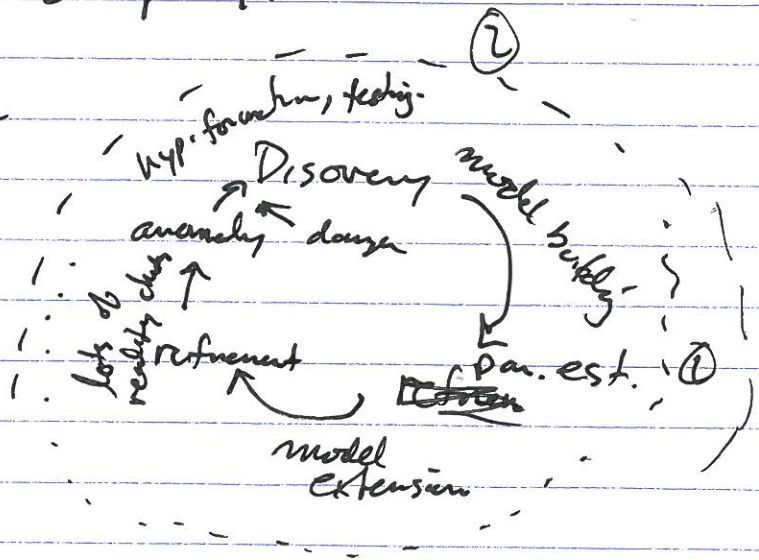 ②
hyp. formation, testing.
Discovery
model building
anomaly danger
lots of
reality checks
refinement
par. est. ①
model
extension